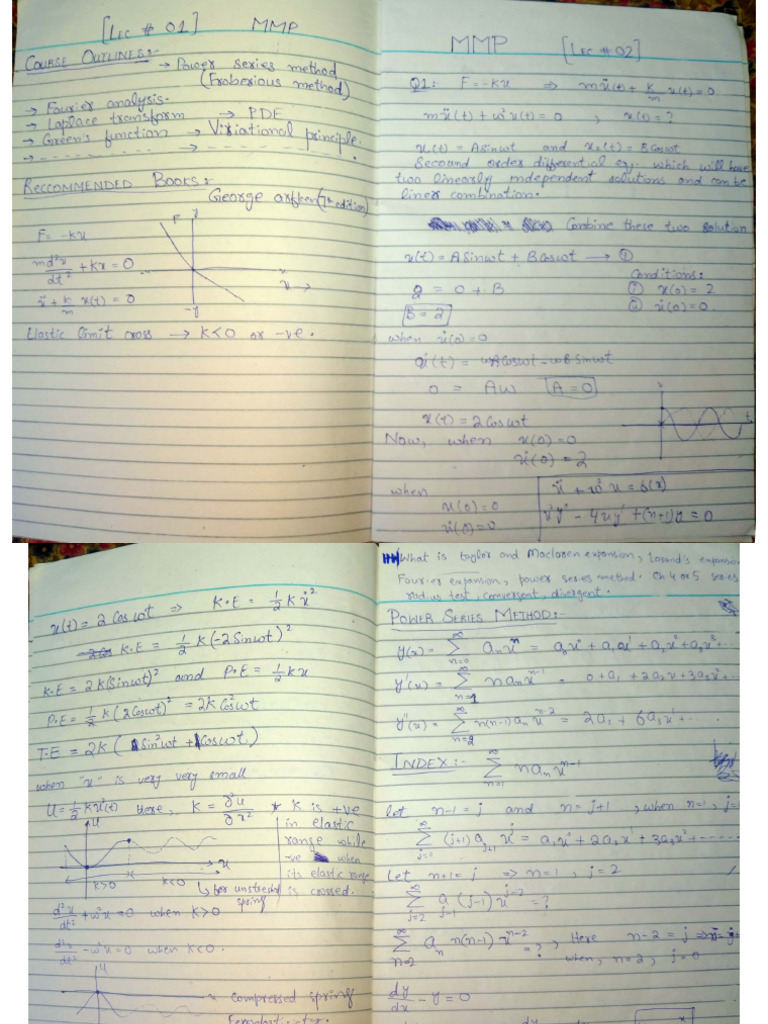 [LEC # 01] MMP
COURSE OUTLINES:-
→ Power series method
(Froberious method)
→ Fourier analysis.
→ Laplace transform → PDE
→ Green's function → Viriational principle.
RECCOMMENDED BOOKS:
George arfken (7th edition)
F = -kx
md²x/dt² + kx = 0
ẍ + k/m x(t) = 0
Elastic limit cross → K<0 or -ve.
MMP [LEC # 02]
Q1: F = -kx ⇒ mẍ(t) + k/m x(t) = 0
mẍ(t) + ω²x(t) = 0 , x(t) = ?
x₁(t) = A sinωt and x₂(t) = B cosωt
Secound order differential eq. which will have
two linearly independent solutions and can be
liner combination.
Combine these two solution
x(t) = A sinωt + B cosωt → ①
Conditions:
① x(0) = 2
② ẋ(0) = 0
2 = 0 + B
B = 2
when ẋ(0) = 0
ẋ(t) = ωA cosωt - ωB sinωt
0 = Aω A = 0
x(t) = 2 Cosωt
Now, when x(0) = 0
ẋ(0) = 2
when
x(0) = 0
ẋ(0) = 0
ẍ + ω²x = δ(x)
x²y'' - 4xy' + (n+1)y = 0
x(t) = 2 Cosωt ⇒ K.E = 1/2 k ẋ²
K.E = 1/2 k(-2 Sinωt)²
K.E = 2k(Sinωt)² and P.E = 1/2 kx
P.E = 1/2 k (2 Cosωt)² = 2k Cos²ωt
T.E = 2k ( Sin²ωt + Cosωt )
when "x" is very very small
U = 1/2 kx²(t) Here, K = ∂²u/∂x² * K is +ve
in elastic
range while
-ve when
its elastic range
is crossed.
U
x
K>0 K<0
↳ for unstrechd
spring
d²x/dt² + ω²x = 0 when K>0
d²x/dt² - ω²x = 0 when K<0.
U
→ Compressed spring
What is taylor and Maclaren expansion,
Fourier expansion, power series method. Ch 4 or 5 series
radius test, convergent, divergent.
POWER SERIES METHOD:-
y(x) = ∞Σn=0 aₙxⁿ = a₀x⁰ + a₁x¹ + a₂x² + a₃x³...
y'(x) = ∞Σn=1 n aₙxⁿ⁻¹ = 0 + a₁ + 2a₂x + 3a₃x² + ...
y''(x) = ∞Σn=2 n(n-1)aₙxⁿ⁻² = 2a₂ + 6a₃x¹ + ...
INDEX:- ∞Σn=1 n aₙ xⁿ⁻¹
let n-1 = j and n = j+1 , when n=1,
∞Σ (j+1) aⱼ₊₁ xʲ = a₁x⁰ + 2a₂x¹ + 3a₃x² + ......
Let n+1 = j ⇒ n=1 , j=2
∞Σj=2 aⱼ₋₁ (j-1) xʲ⁻² = ?
∞Σn=2 aₙ n(n-1) xⁿ⁻² = ? , Here n-2 = j
when, n=2, j=0
dy/dx - y = 0